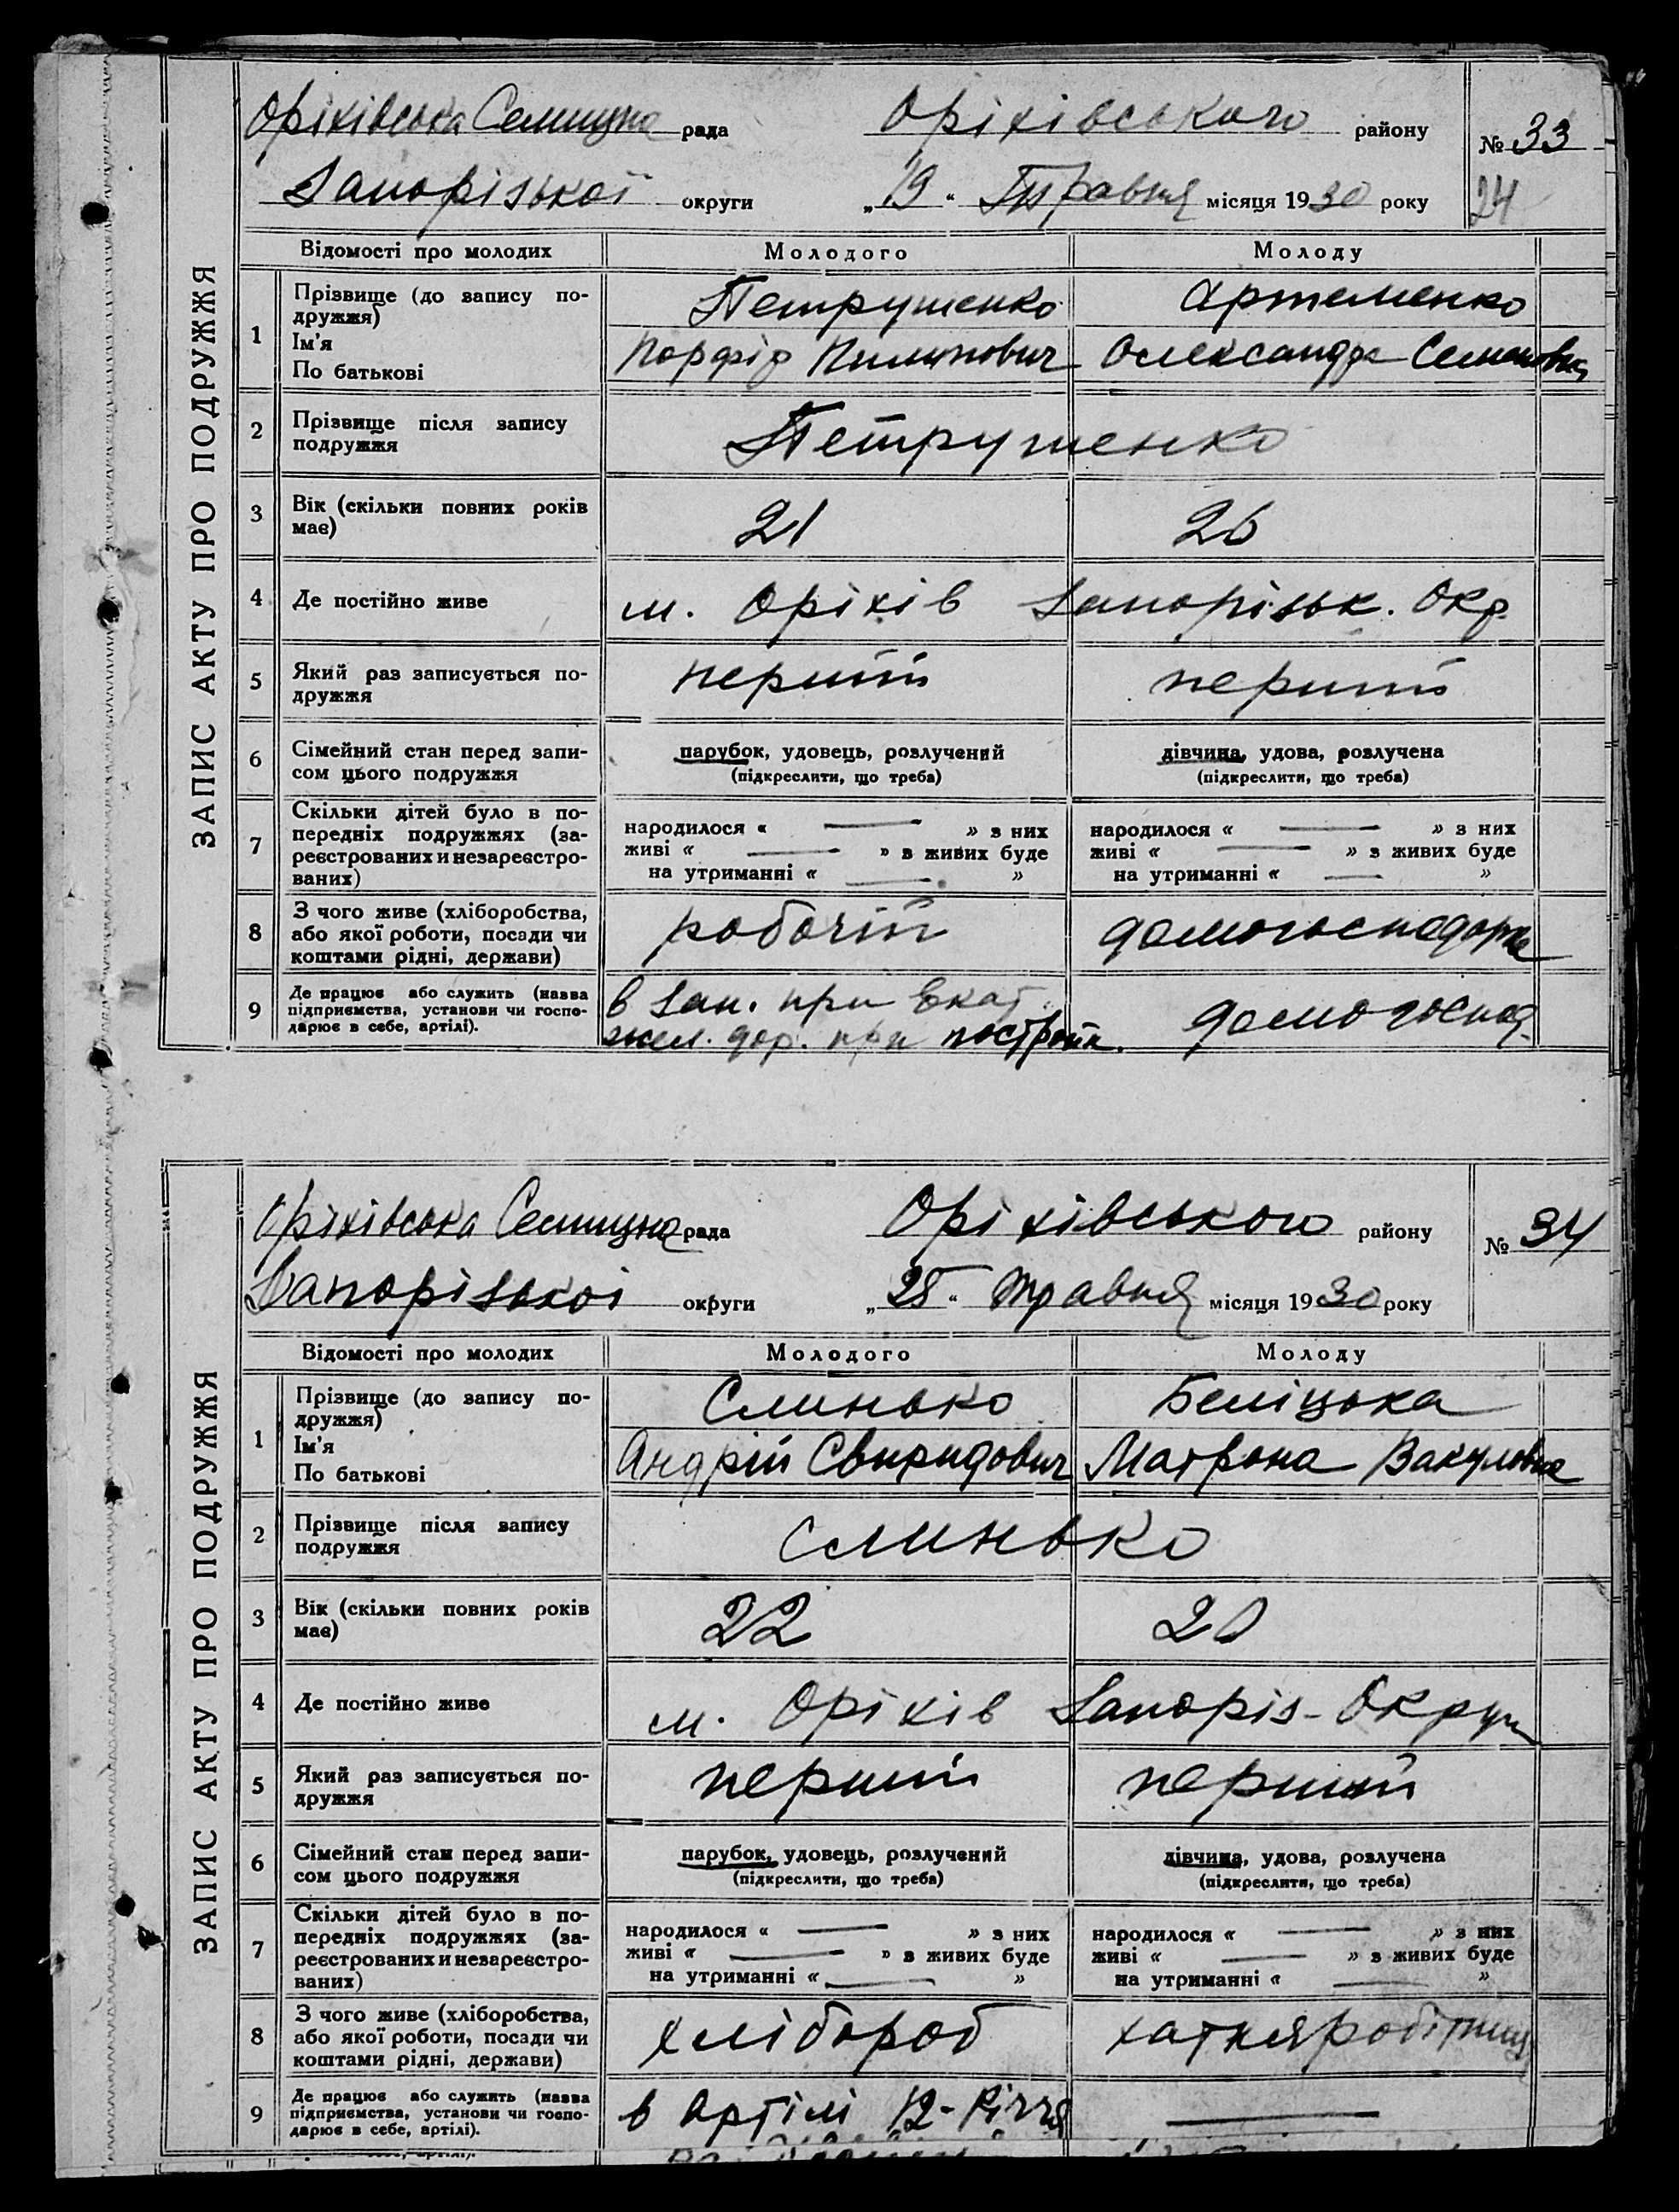 ЗАПИС АКТУ ПРО ПОДРУЖЖЯ
Оріхівська Селищна рада Оріхівського району № 33
Запорізької округи „ 19 “ Травня місяця 1930 року 24
Відомості про молодих Молодого Молоду
1 Прізвище (до запису по-
дружжя) Петрушенко Артеменко
Ім'я
По батькові Порфір Пилипович Олександра Семеновна
2 Прізвище після запису
подружжя Петрушенко
3 Вік (скільки повних років
має) 21 26
4 Де постійно живе м. Оріхів Запорізьк. Окр.
5 Який раз записується по-
дружжя перший перший
6 Сімейний стан перед запи-
сом цього подружжя парубок, удовець, розлучений дівчина, удова, розлучена
(підкреслити, що треба) (підкреслити, що треба)
7 Скільки дітей було в по-
передніх подружжях (за-
реєстрованих и незареєстро-
ваних) народилося « — » з них народилося « — » з них
живі « — » з живих буде живі « — » з живих буде
на утриманні « — » на утриманні « — »
8 З чого живе (хліборобства,
або якої роботи, посади чи
коштами рідні, держави) робочій домогосподарка
9 Де працює або служить (назва
підприємства, установи чи госпо-
дарює в себе, артілі). в Зап. при Екат.
жел. дор. при постройк. домогоспод.
ЗАПИС АКТУ ПРО ПОДРУЖЖЯ
Оріхівська Селищна рада Оріхівського району № 34
Запорізької округи „ 25 “ Травня місяця 1930 року
Відомості про молодих Молодого Молоду
1 Прізвище (до запису по-
дружжя) Слинько Беліцька
Ім'я
По батькові Андрій Свиридович Матрона Вакуловна
2 Прізвище після запису
подружжя Слинько
3 Вік (скільки повних років
має) 22 20
4 Де постійно живе м. Оріхів Запоріз- Округи
5 Який раз записується по-
дружжя перший перший
6 Сімейний стан перед запи-
сом цього подружжя парубок, удовець, розлучений дівчина, удова, розлучена
(підкреслити, що треба) (підкреслити, що треба)
7 Скільки дітей було в по-
передніх подружжях (за-
реєстрованих и незареєстро-
ваних) народилося « — » з них народилося « — » з них
живі « — » з живих буде живі « — » з живих буде
на утриманні « — » на утриманні « — »
8 З чого живе (хліборобства,
або якої роботи, посади чи
коштами рідні, держави) хлібороб хатня робітниця
9 Де працює або служить (назва
підприємства, установи чи госпо-
дарює в себе, артілі). в Артілі 12-Річчя —